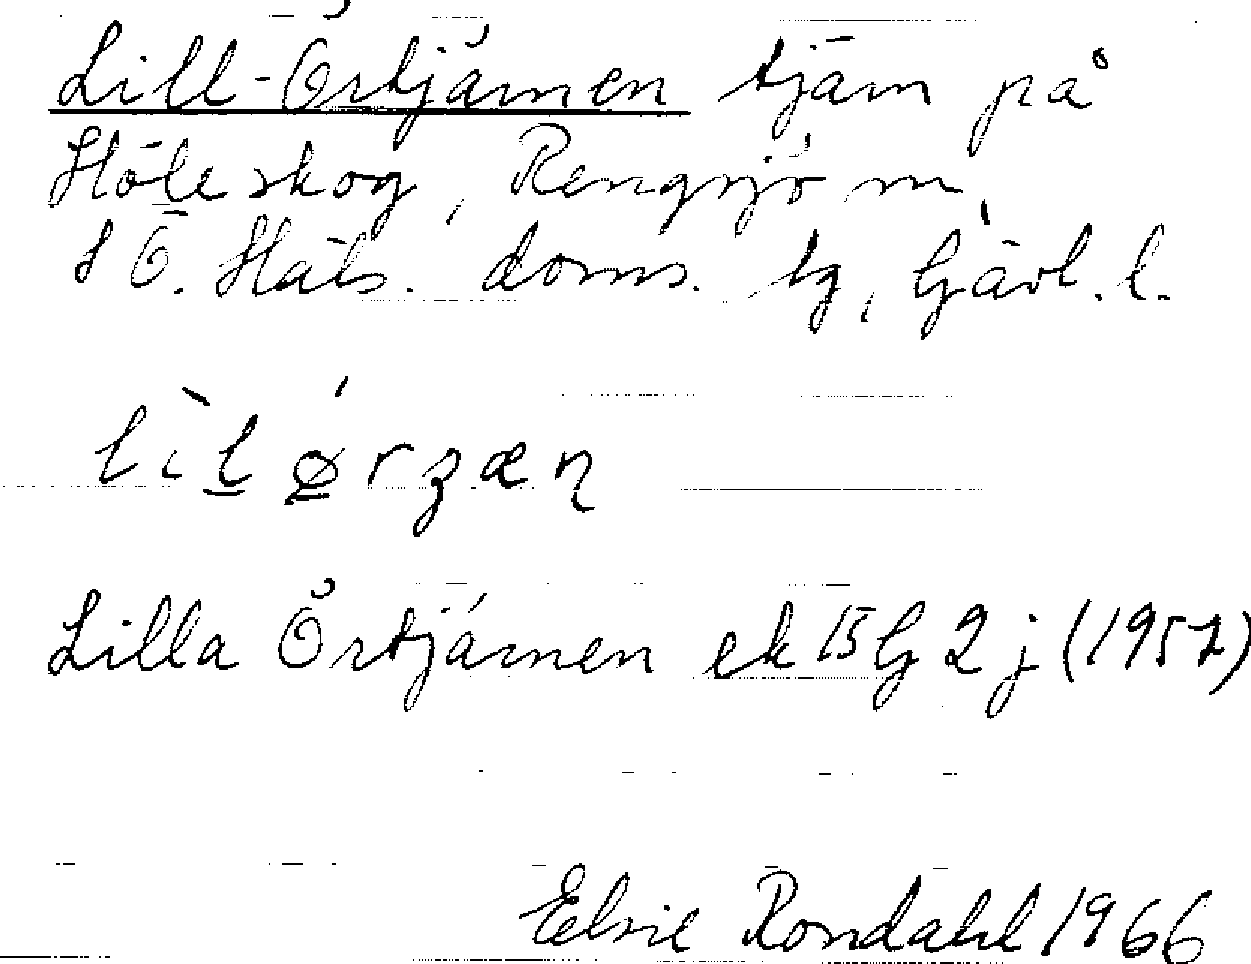 Lill-Örtjärnen tjärn på
Höle skog, Rengsjö sn,
SÖ. Häls. doms. tg, Gävl. l.
Lilla Örtjärnen ek 15G 2j (1957)
Elsie Rondahl 1966